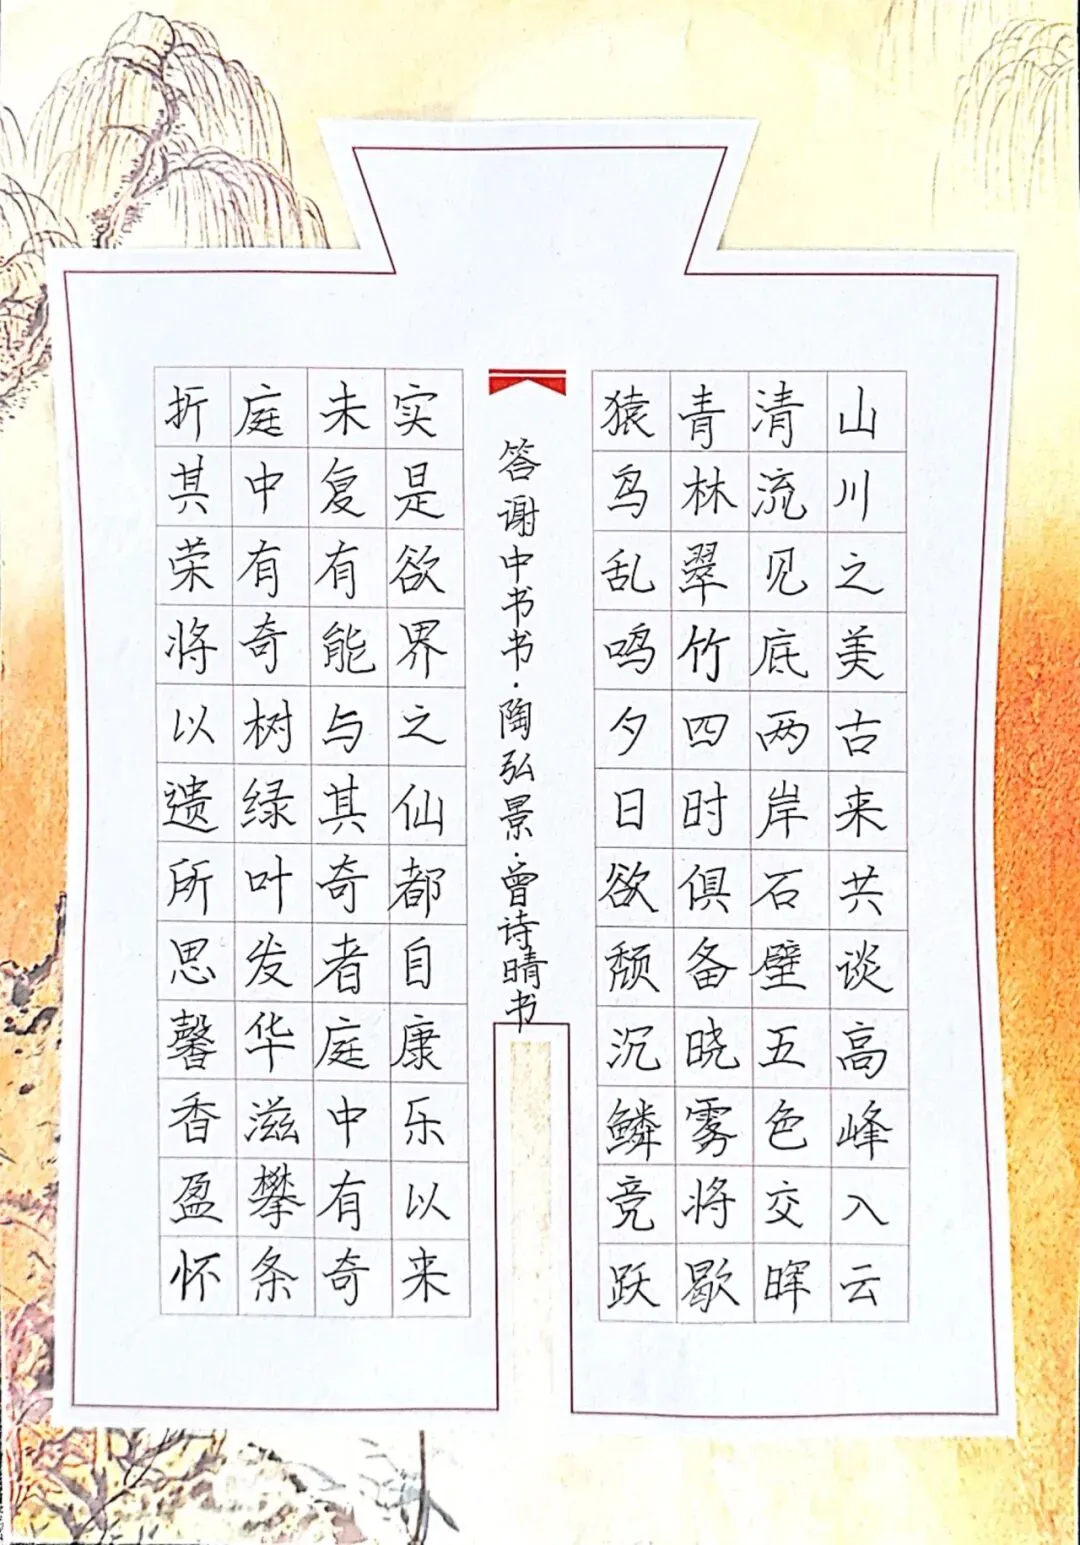 山川之美古来共谈高峰入云
清流见底两岸石壁五色交晖
青林翠竹四时俱备晓雾将歇
猿鸟乱鸣夕日欲颓沉鳞竞跃
答谢中书书·陶弘景·曾诗晴书
实是欲界之仙都自康乐以来
未复有能与其奇者庭中有奇
庭中有奇树绿叶发华滋攀条
折其荣将以遗所思馨香盈怀